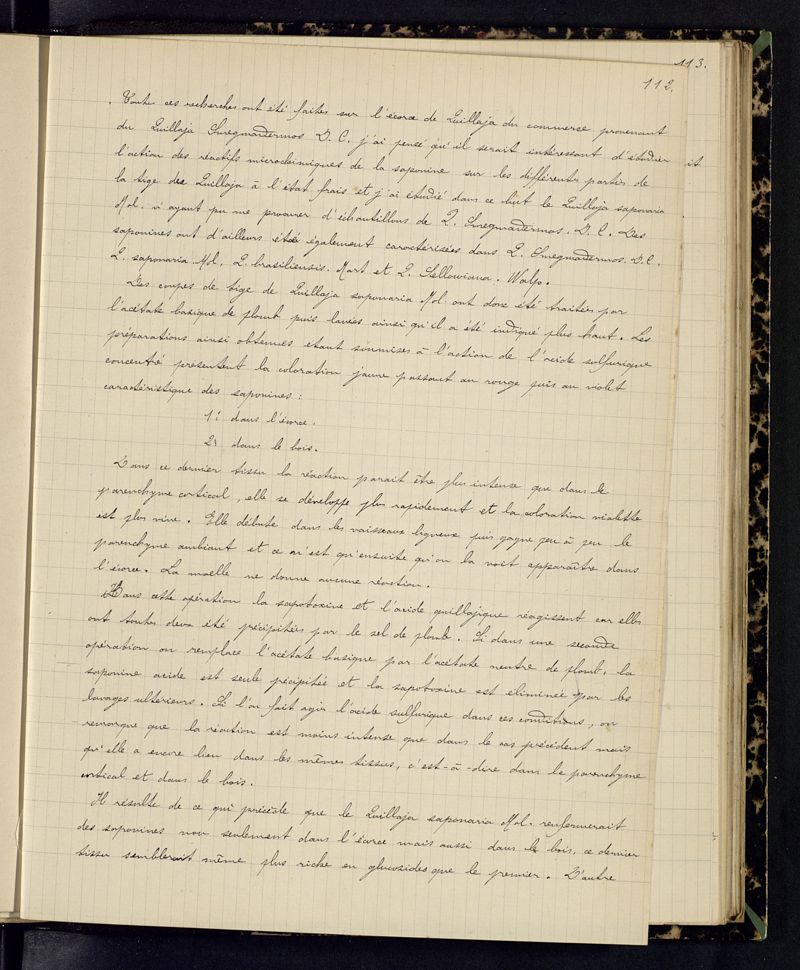 113.
112.
Toutes ces recherches ont été faites sur l'écorce de Quillaja du commerce provenant
du Quillaja Smegmadermos D.C. j'ai pensé qu'il serait intéressant d'étudier
it
l'action des réactifs microchimiques de la saponine sur les différentes parties de
la tige des Quillaja à l'état frais et j'ai étudié dans ce but le Quillaja saponaria
Mol. n'ayant pu me procurer d'échantillons de Q. Smegmadermos. D.C. Des
saponines ont d'ailleurs été également caractérisées dans Q. Smegmadermos. D.C.
Q. saponaria Mol, Q. brasiliensis. Mart et Q. Sellowiana. Walp.
Des coupes de tige de Quillaja saponaria Mol ont donc été traitées par
l'acétate basique de plomb puis lavées ainsi qu'il a été indiqué plus haut. Les
préparations ainsi obtenues etant soumises à l'action de l'acide sulfurique
concentré présentent la coloration jaune passant au rouge puis au violet
caractéristique des saponines :
1: dans l'écorce.
2: dans le bois.
Dans ce dernier tissu la réaction parait être plus intense que dans le
parenchyme cortical, elle se développe plus rapidement et la coloration violette
est plus vive. Elle débute dans les vaisseaux ligneux puis gagne peu à peu le
parenchyme ambiant et ce n'est qu'ensuite qu'on la voit apparaître dans
l'écorce. La moelle ne donne aucune réaction.
Dans cette opération la sapotoxine et l'acide quillajique réagissent car elles
ont toutes deux été précipitées par le sel de plomb. Si dans une seconde
opération on remplace l'acétate basique par l'acétate neutre de plomb, la
saponine acide est seule précipitée et la sapotoxine est éliminée par les
lavages ultérieurs. Si l'on fait agir l'acide sulfurique dans ces conditions, on
remarque que la réaction est moins intense que dans le cas précédent mais
qu'elle a encore lieu dans les mêmes tissus, c'est-à-dire dans le parenchyme
cortical et dans le bois.
Il résulte de ce qui précède que le Quillaja saponaria Mol. renfermerait
des saponines non seulement dans l'écorce mais aussi dans le bois, ce dernier
tissu semblerait même plus riche en glucosides que le premier. D'autre